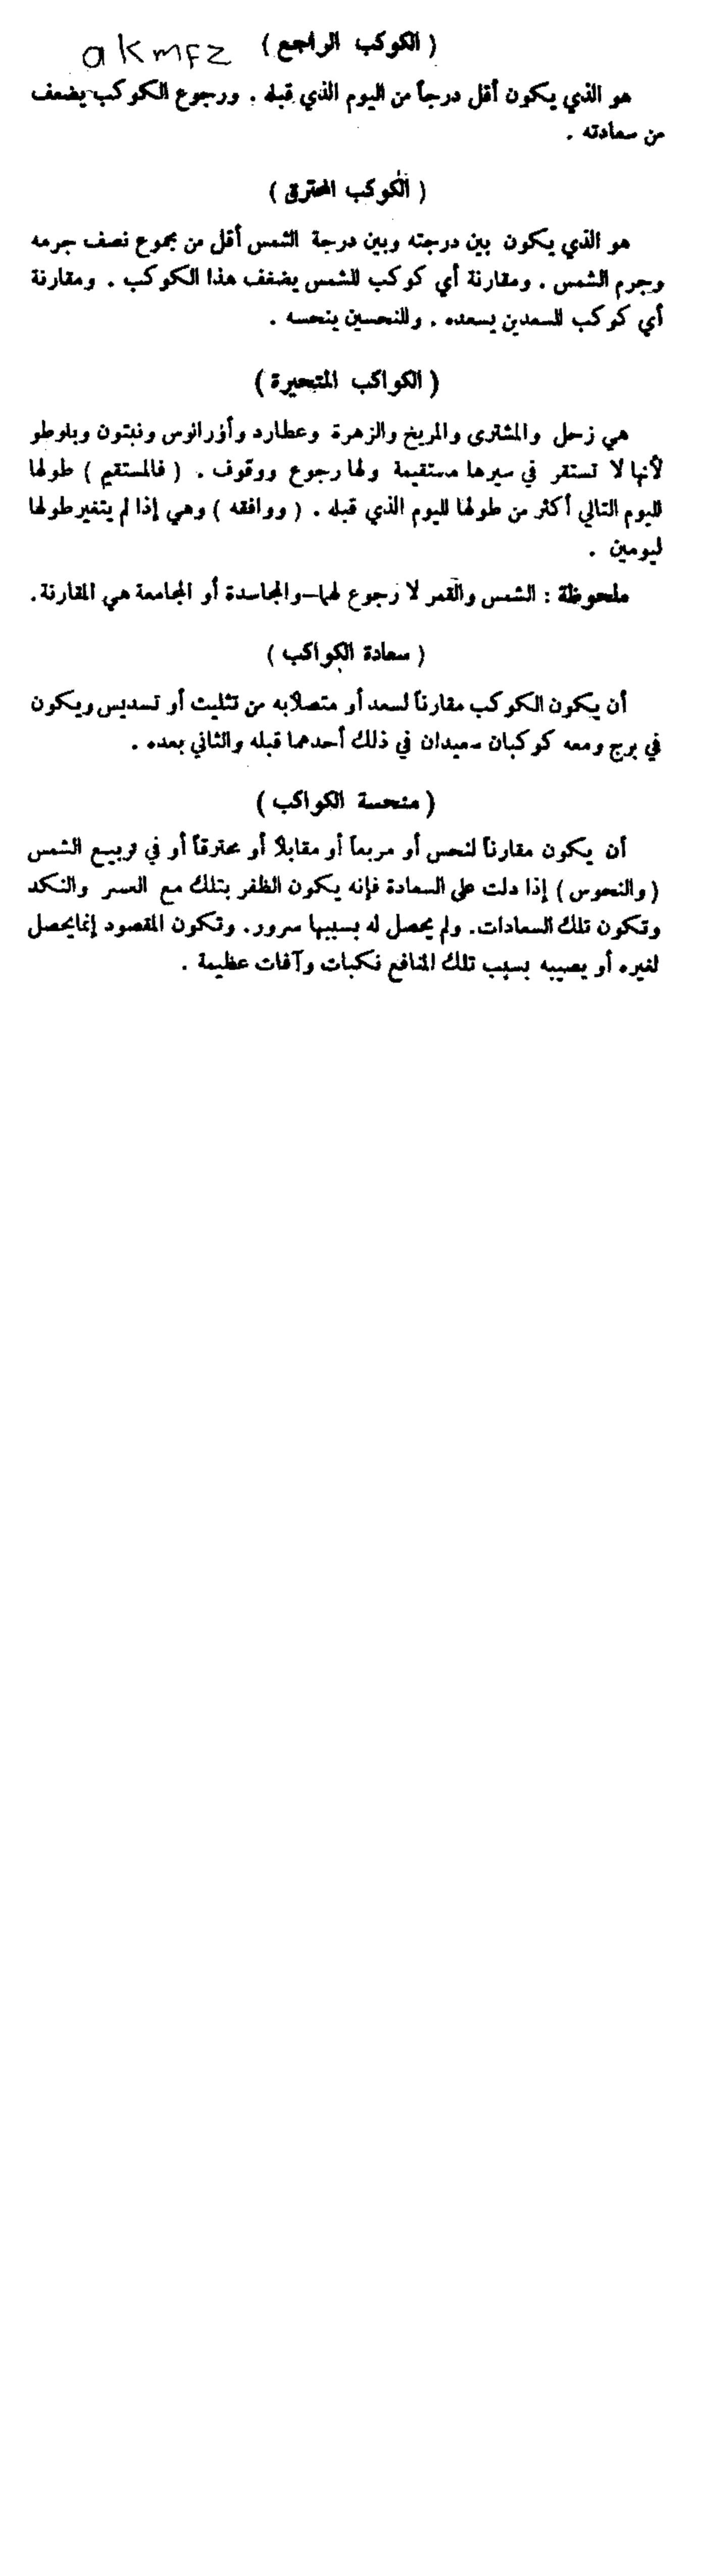 ( الكوكب الراجع ) akmfz
هو الذي يكون أقل درجاً من اليوم الذي قبله . ورجوع الكوكب يضعف
من سعادته .
( الكوكب المحترق )
هو الذي يكون بين درجته وبين درجة الشمس أقل من مجموع نصف جرمه
وجرم الشمس . ومقارنة أي كوكب للشمس يضعف هذا الكوكب . ومقارنة
أي كوكب للسعدين يسعده . وللنحسين ينحسه .
( الكواكب المتحيرة )
هي زحل والمشترى والمريخ والزهرة وعطارد وأورانوس ونبتون وبلوطو
لأنها لا تستقر في سيرها مستقيمة ولها رجوع ووقوف . ( فالمستقيم ) طولها
لليوم التالي أكثر من طولها لليوم الذي قبله . ( وواقفه ) وهي إذا لم يتغير طولها
ليومين .
ملحوظة : الشمس والقمر لا رجوع لهما–والمجاسدة أو المجامعة هي المقارنة.
( سعادة الكواكب )
أن يكون الكوكب مقارناً لسعد أو متصلا به من تثليث أو تسديس ويكون
في برج ومعه كوكبان سعيدان في ذلك أحدهما قبله والثاني بعده .
( منحسة الكواكب )
أن يكون مقارناً لنحس أو مربعاً أو مقابلاً أو محترقاً أو في تربيع الشمس
( والنحوس ) إذا دلت على السعادة فإنه يكون الظفر بتلك مع العسر والنكد
وتكون تلك السعادات. ولم يحصل له بسببها سرور. وتكون المقصود إنما يحصل
لغيره أو يصيبه بسبب تلك المنافع نكبات وآفات عظيمة .